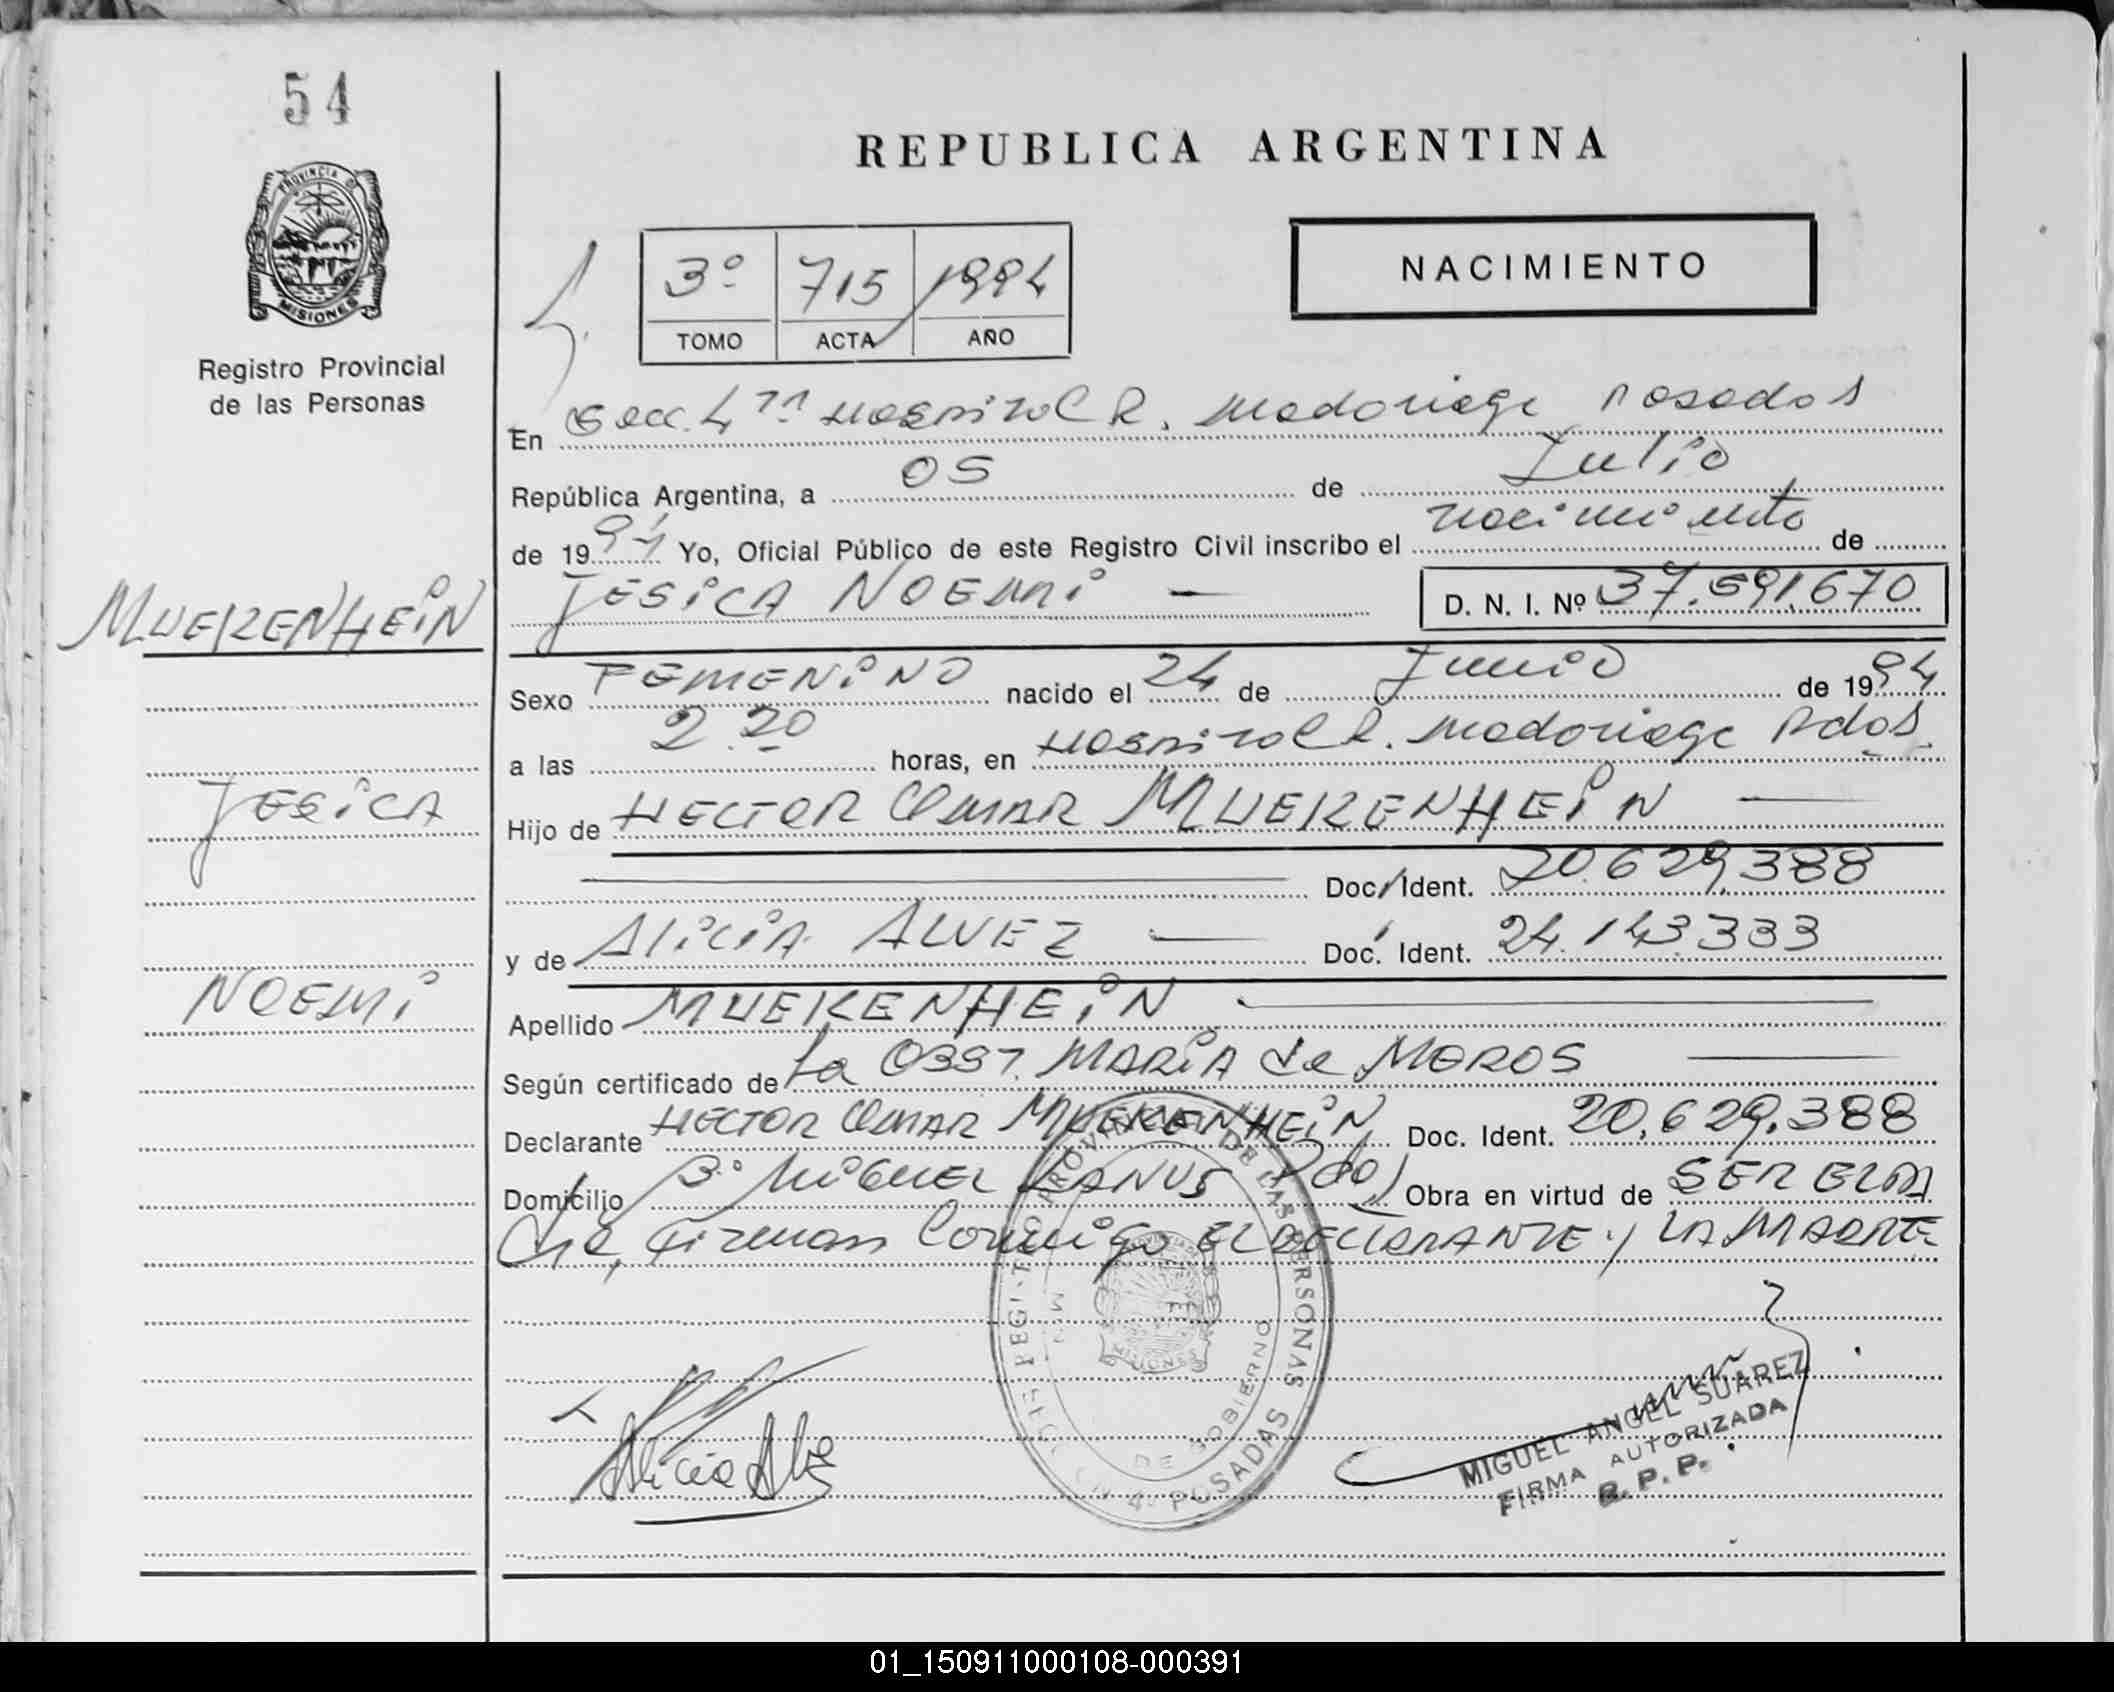 54
REPUBLICA ARGENTINA
PROVINCIA DE
MISIONES
Registro Provincial
de las Personas
3º 715 1994
TOMO ACTA AÑO
NACIMIENTO
En Secc. 4ta Hospital R. Madariaga Posadas
República Argentina, a 05 de Julio
de 1994 Yo, Oficial Público de este Registro Civil inscribo el nacimiento de
JESiCA NOEMi — D. N. I. Nº 37.591.670
MUEKENHEiN
Sexo FEMENiNO nacido el 24 de Junio de 1994
a las 2.20 horas, en Hospital R. Madariaga Pdas.
JESiCA
Hijo de HECTOR OMAR MUEKENHEiN —
Doc. Ident. 20.629.388
y de ALiCiA ALVEZ — Doc. Ident. 24.143.333
NOEMi
Apellido MUEKENHEiN —
Según certificado de La OBST. MARiA de MEROS —
Declarante HECTOR OMAR MUEKENHEiN Doc. Ident. 20.629.388
Domicilio Bº MiGUEL LANUS Pdas. Obra en virtud de SER EL PA
dre, firman Conmigo EL DECLARANTE y LA MADRE
REGISTRO PROVINCIAL DE LAS PERSONAS
DE GOBIERNO
MISIONES
SECCION 4ª POSADAS
Alicia Alvez
MIGUEL ANGEL SUAREZ
FIRMA AUTORIZADA
R. P. P.
01_150911000108-000391